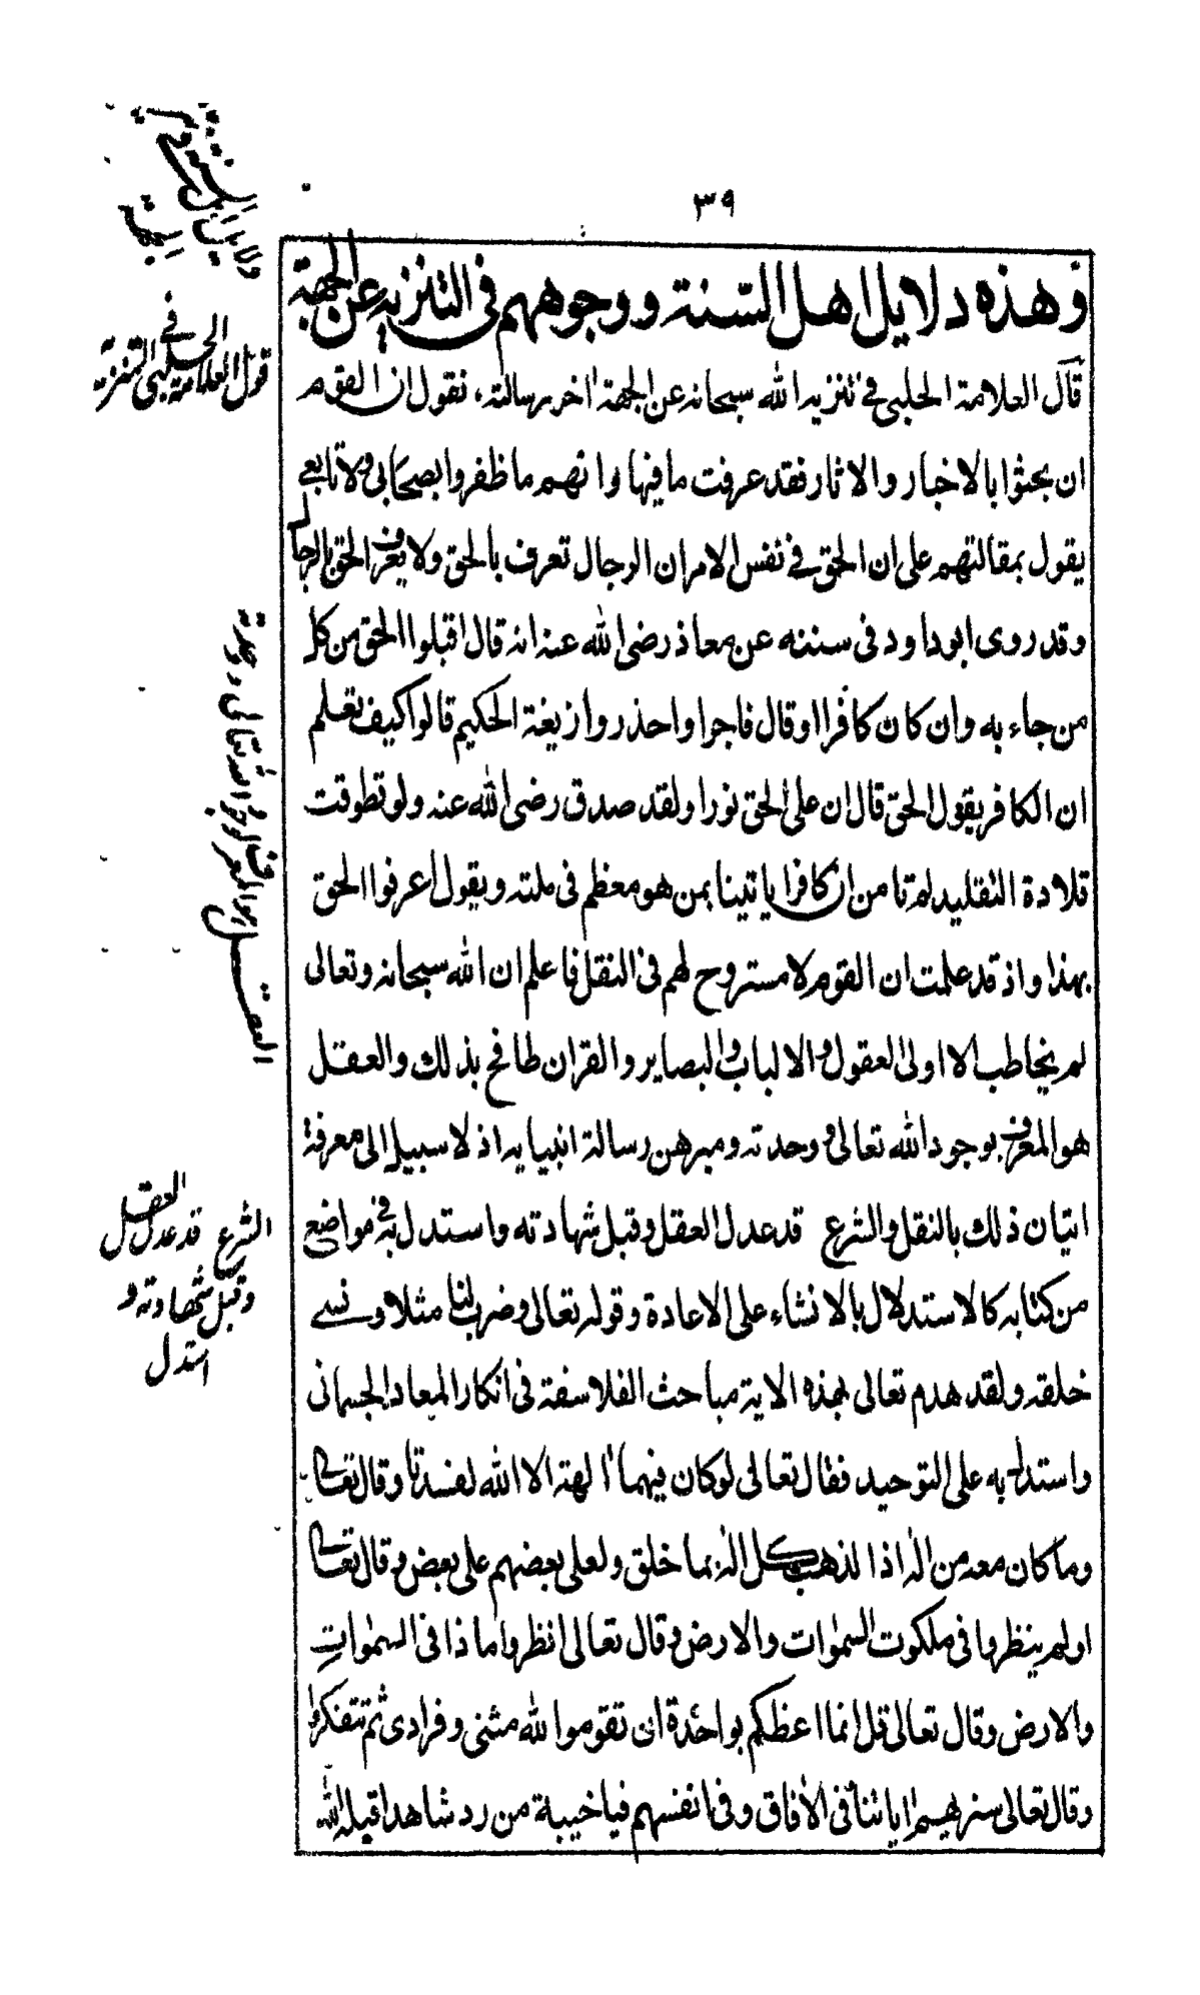 ٣٩
وهذه دلايل اهل السّنة ووجوههم فى التنزيه عن الجهة
قال العلامة الحلبى فى تنزيه الله سبحانه عن الجهة اخر رسالته، نقول ان القوم
ان بحثوا بالاخبار والاثار فقد عرفت ما فيها وانهم ما ظفروا بصحابى ولا تابعى
يقول بمقالتهم على ان الحق فى نفس الامر ان الرجال تعرف بالحق ولا يعرف الحق بالرجال
وقد روى ابو داود فى سننه عن معاذ رضى الله عنه انه قال اقبلوا الحق من كل
من جاء به وان كان كافرا او قال فاجرا واحذروا زيغة الحكيم قالوا كيف تعلم
ان الكافر يقول الحق قال ان على الحق نورا ولقد صدق رضى الله عنه ولو تطوقت
قلادة التقليد لم تامن ان كافرا ياتينا بمن هو معظم فى ملته ويقول اعرفوا الحق
بهذا واذ قد علمت ان القوم لا مستروح لهم فى النقل فاعلم ان الله سبحانه وتعالى
لم يخاطب الا اولى العقول والالباب والبصاير والقران طافح بذلك والعقل
هو المعرف بوجود الله تعالى ووحدته ومبرهن رسالة انبيايه اذ لا سبيل الى معرفة
اتيان ذلك بالنقل والشرع قد عدل العقل وقبل شهادته واستدل به فى مواضع
من كتابه كالاستدلال بالانشاء على الاعادة وقوله تعالى وضرب لنا مثلا ونسى
خلقه ولقد هدم تعالى بهذه الاية مباحث الفلاسفة فى انكار المعاد الجسمانى
واستدل به على التوحيد فقال تعالى لو كان فيهما الهة الا الله لفسدتا وقال تعالى
وما كان معه من اله اذا لذهب كل اله بما خلق ولعلى بعضهم على بعض وقال تعالى
اولم ينظروا فى ملكوت السموات والارض وقال تعالى انظروا ما ذا فى السموات
والارض وقال تعالى قل انما اعظكم بواحدة ان تقوموا لله مثنى وفرادى ثم تتفكروا
وقال تعالى سنريهم اياتنا فى الافاق وفى انفسهم فيا خيبة من رد شاهدا قبله الله
دلايل اهل السنة
الجهة
قول العلامة الحلبى فى التنزيه
العقل هو المعرف بوجود الله تعالى ووحدته
الشرع قد عدل العقل
وقبل شهادته و
استدل